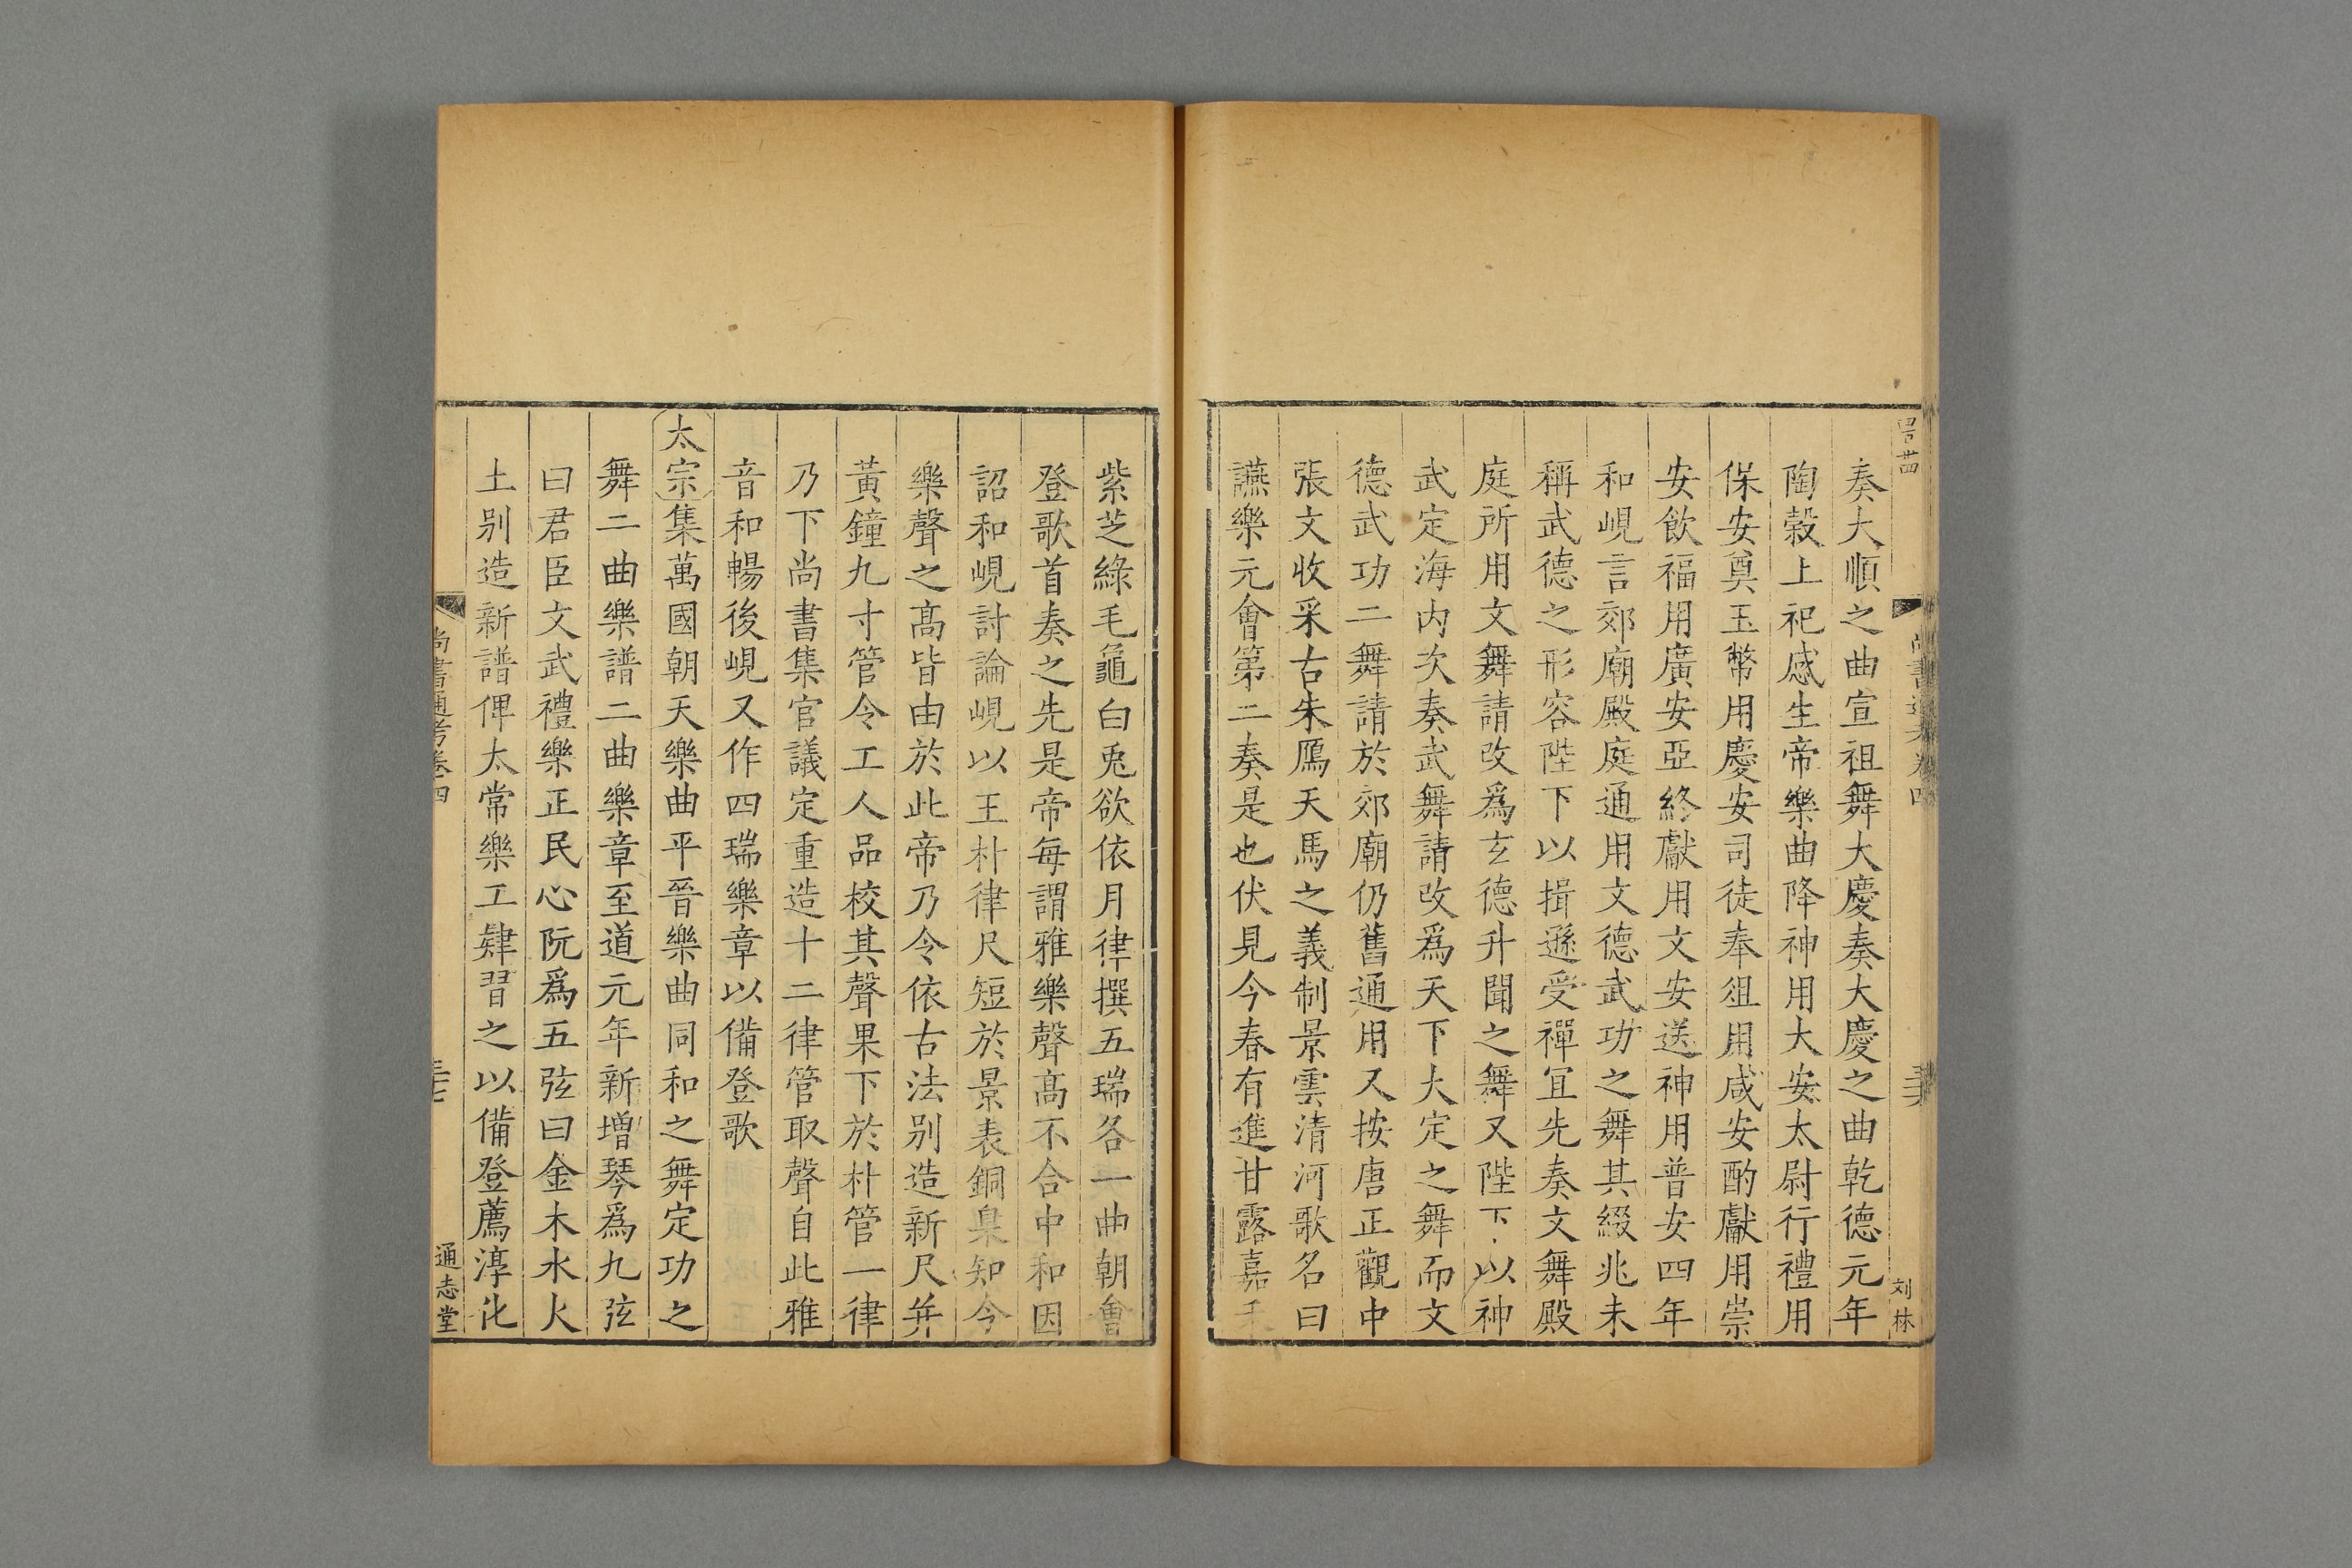 奏大順之曲宣祖舞大慶奏大慶之曲乾德元年
陶榖上祀感生帝樂曲降神用大安太尉行禮用
保安奠玉幣用慶安司徒奉俎用咸安酌獻用崇
安飲福用廣安亞終獻用文安送神用普安四年
和峴言郊廟殿庭通用文德武功之舞其綴兆未
稱武德之形容陛下以揖遜受禪冝先奏文舞殿
庭所用文舞請改爲玄德升聞之舞又陛下以神
武定海内次奏武舞請改爲天下大定之舞而文
德武功二舞請於郊廟仍舊通用又按唐正觀中
張文收采古朱鴈天馬之義制景雲清河歌名曰
讌樂元會第二奏是也伏見今春有進甘露嘉禾
紫芝綠毛龜白兎欲依月律撰五瑞各一曲朝會
登歌首奏之先是帝每謂雅樂聲髙不合中和因
詔和峴討論峴以王朴律尺短於景表銅臬知今
樂聲之髙皆由於此帝乃令依古法别造新尺并
黃鐘九寸管令工人品校其聲果下於朴管一律
乃下尚書集官議定重造十二律管取聲自此雅
音和暢後峴又作四瑞樂章以備登歌
太宗集萬國朝天樂曲平晉樂曲同和之舞定功之
舞二曲樂譜二曲樂章至道元年新增琴爲九弦
曰君臣文武禮樂正民心阮爲五弦曰金木水火
土别造新譜俾太常樂工肄習之以備登薦淳化
尚書通考卷四
通志堂
刘林